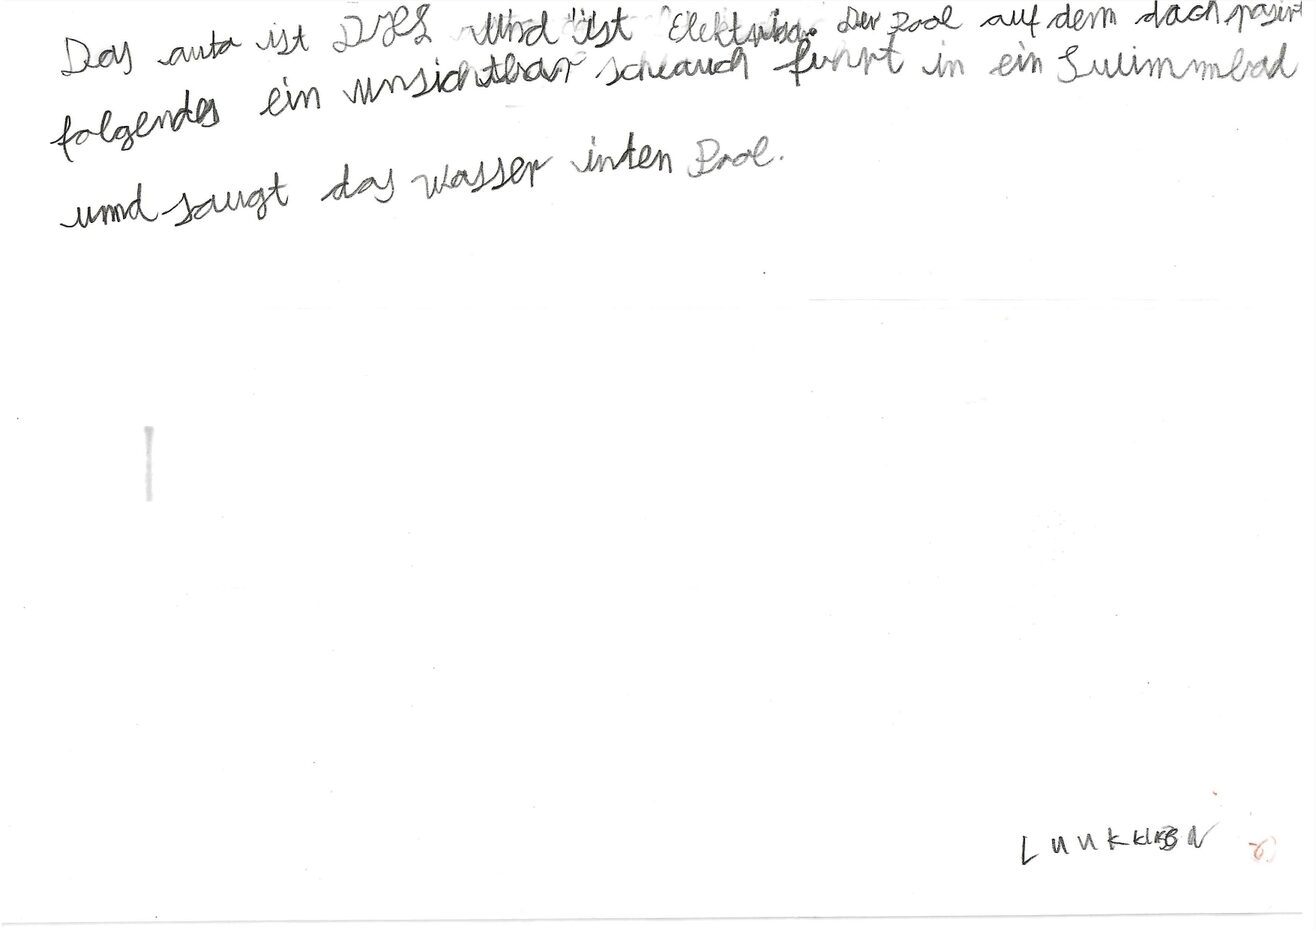 Das auto ist und ist Der Pool auf dem dach pasirt
folgendes ein unsichtbar schlauch führt in ein Swimmbad
umd saugt das wasser inten Pool.
LUUK